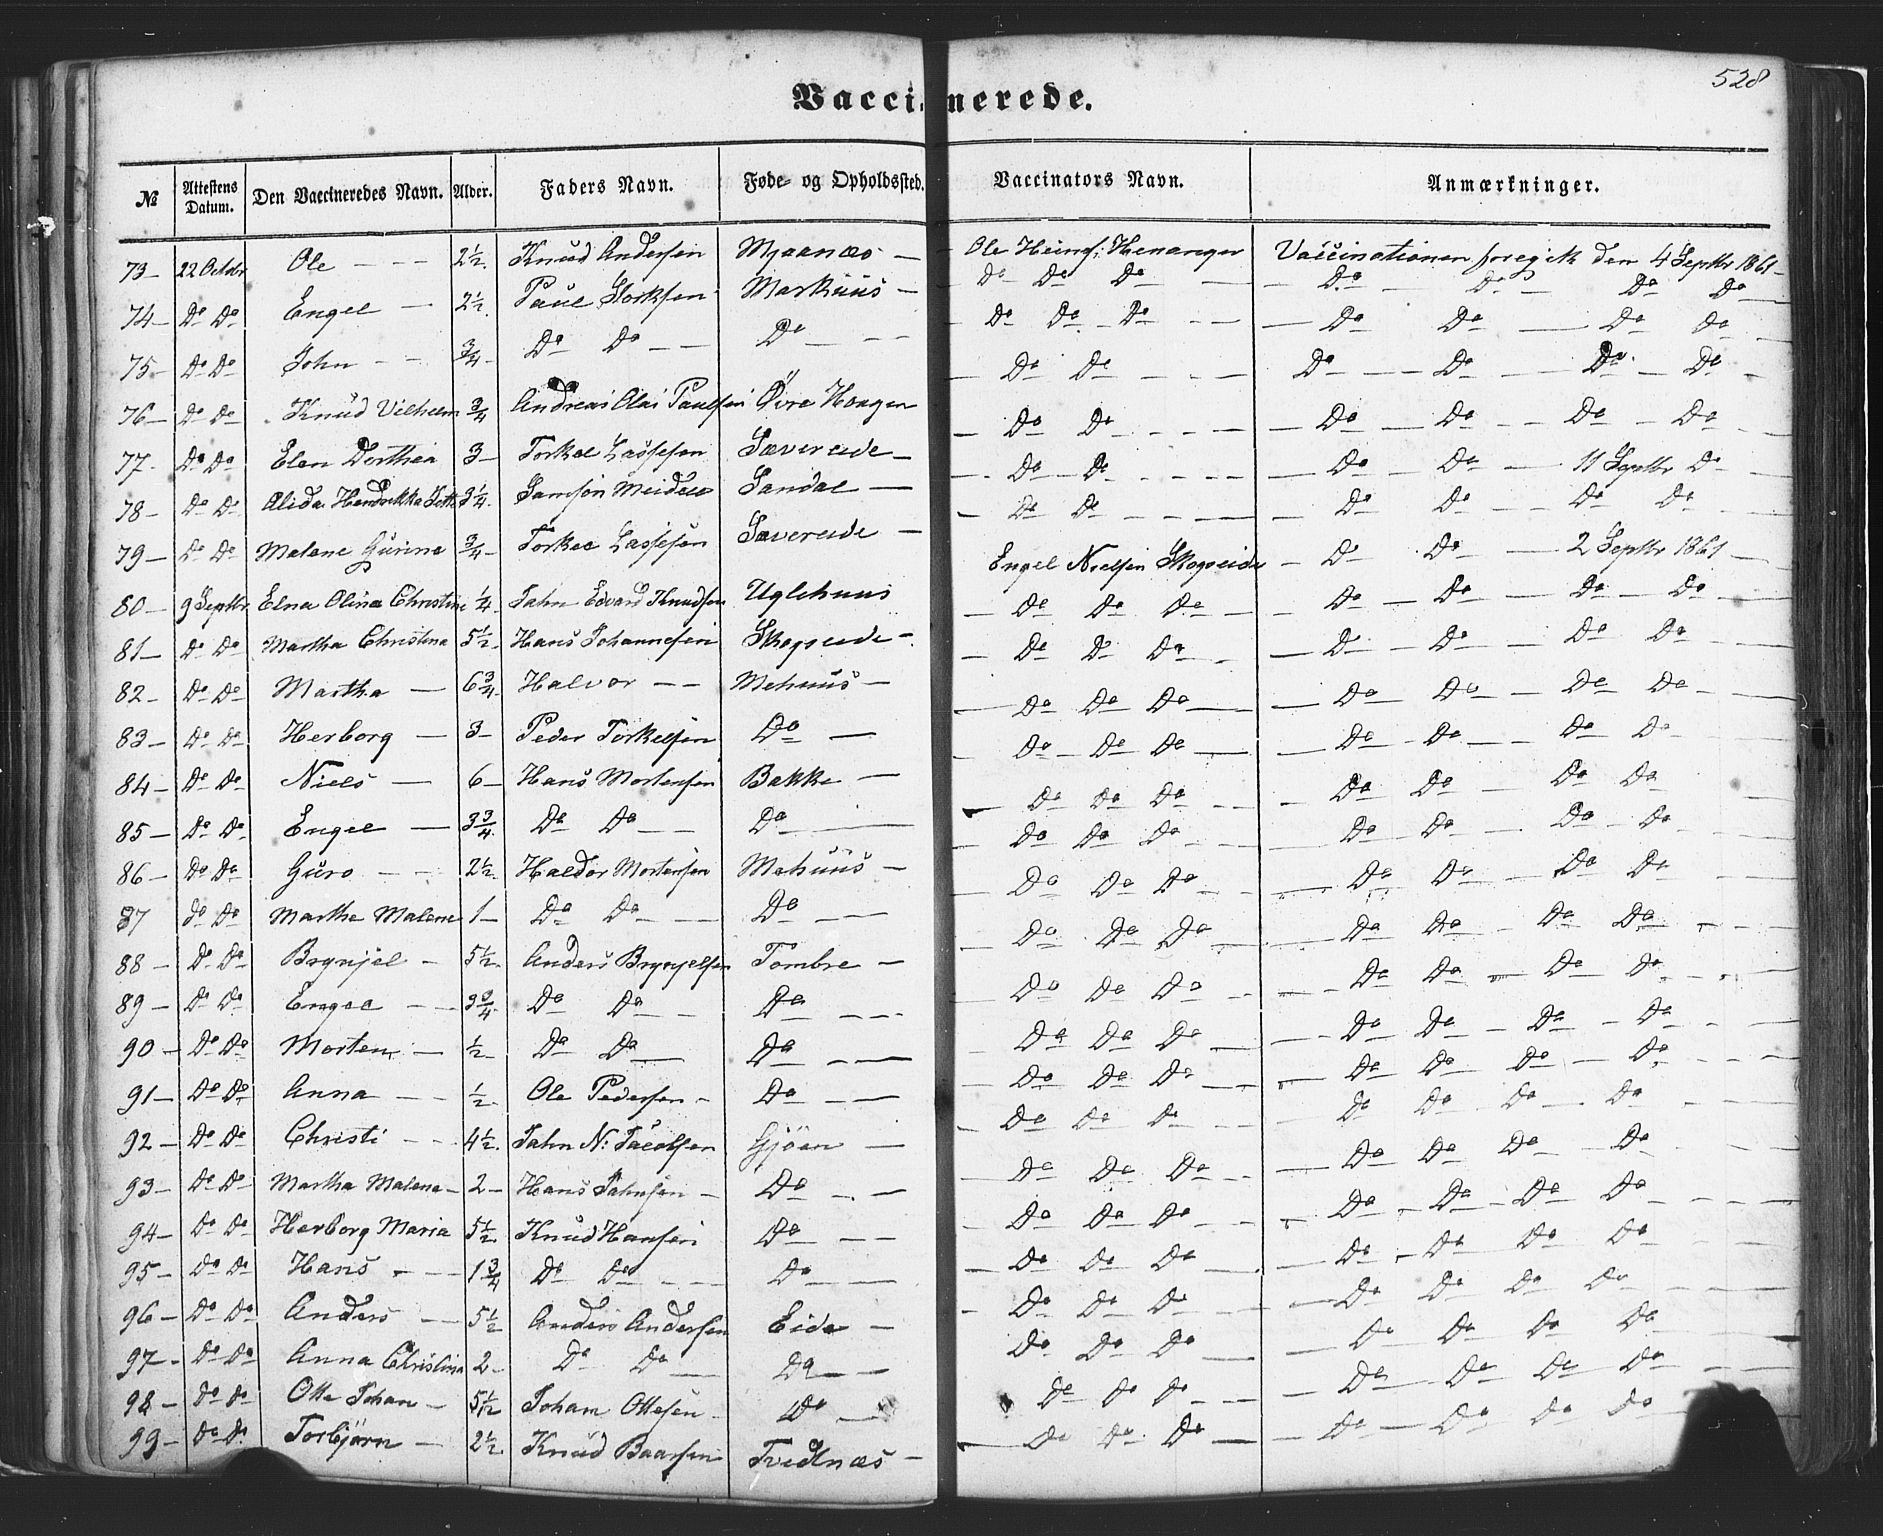 528
Vaccinerede.
№ Attestens Datum. Den Vaccineredes Navn. Alder. Faders Navn. Føde- og Opholdssted. Vaccinators Navn. Anmærkninger.
73 – 22 Octbr Ole – – – 2½. Knud Andersen Mjaanæs – Ole Heinr: Henanger Vaccinationen foregik den 4 Septbr 1861 –
74 – Do Do Engel – 2½. Paul Størksen Markuus – Do Do Do – – Do – Do – Do Do –
75 – Do Do John – – ¾ – Do Do – – Do – – – – Do Do – Do – – – Do Do – Do Do
76 – Do Do Knud Vilhelm ¾ Andreas Olai Paulsen Øvre Haagen – Do Do – – – Do – – Do – Do – Do –
77 – Do Do Elen Dorthea 3 – Torkel Lassesen Sævereide – – Do Do – – – – – Do Do – Do – Do
78 – Do Do Alida Hendrikka 3¼. Samson Meidell Sandal – – Do – Do – – – – – Do Do – 11 Septbr Do –
79 – Do Do Malene Gurina ¾ – Torkel Lassesen Sævereide – – Do Do – – – – – Do Do Do Do
80 – 9 Septbr Elna Olina Christine ¼ Jahn Edvard Knudsen Uglehuus Engel Nielsen Skogseide – Do Do – – 2 Septbr 1861 –
81 – Do Do Martha Christina 5½. Hans Johannesen Skogseide – – Do Do Do – – – Do Do – Do – Do
82 – Do Do Martha – 6¾. Halvor – – Mehuus – – Do Do Do – – Do – Do – Do Do –
83 – Do Do Herborg – 3 – Peder Torkelsen Do – – Do – Do Do – – Do – Do – Do – Do –
84 – Do Do Niels – 6 – Hans Mortensen Bakke – – Do – Do Do – – Do – Do – – Do Do
85 – Do Do Engel – 3¾. Do Do – – Do – – Do Do Do – – – Do Do – Do Do
86 – Do Do Guro – – 2½. Haldor Mortensen Mehuus – – Do Do Do – – – Do – Do – – Do – Do –
87 Do Do Marthe Malene 1 – Do Do – – Do – – – Do Do Do – – – Do Do – – Do Do –
88 – Do Do Brynjel – 5½. Anders Brynjelsen Tombre – – Do Do Do – – Do Do – Do Do – –
89 – Do Do Engel – – 3¾. Do Do – – Do – – – – Do Do Do – – – Do Do – – Do Do –
90 – Do Do Morten – ½ – Do Do – Do – – – Do Do Do – – Do Do – Do – Do –
91 – Do Do Anna – – ½ – Ole Pedersen – Do – – – Do Do Do – – – Do Do – Do – Do –
92 – Do Do Christi – – 4½. Jahn N: Jacobsen Gjöen – – Do Do Do – – – Do Do – Do – Do –
93 – Do Do Martha Malene – 2 – Hans Jahnsen – Do – – – Do Do Do – – – Do Do Do – Do
94 – Do Do Herborg Maria 5½. Knud Hansen Do – – – Do Do Do – – – Do – Do – Do Do –
95 – Do Do Hans – – 1¾ Do Do – – – Do – – – Do Do Do – – – Do – Do – Do Do –
96 – Do Do Anders – 5½ Anders Andersen Eide – – Do Do Do – – – Do Do – Do – Do
97 – Do Do Anna Christina 2 – Do Do – Do – – – Do Do Do – – Do – Do – Do Do –
98 – Do Do Otto Johan – 5½. Johan Ottesen – Do – Do Do Do – – – Do – Do – Do Do –
99 – Do Do Torbjørn – 2½. Knud Baarsen Tvedtnæs – – Do Do – Do – – Do – Do – Do Do –